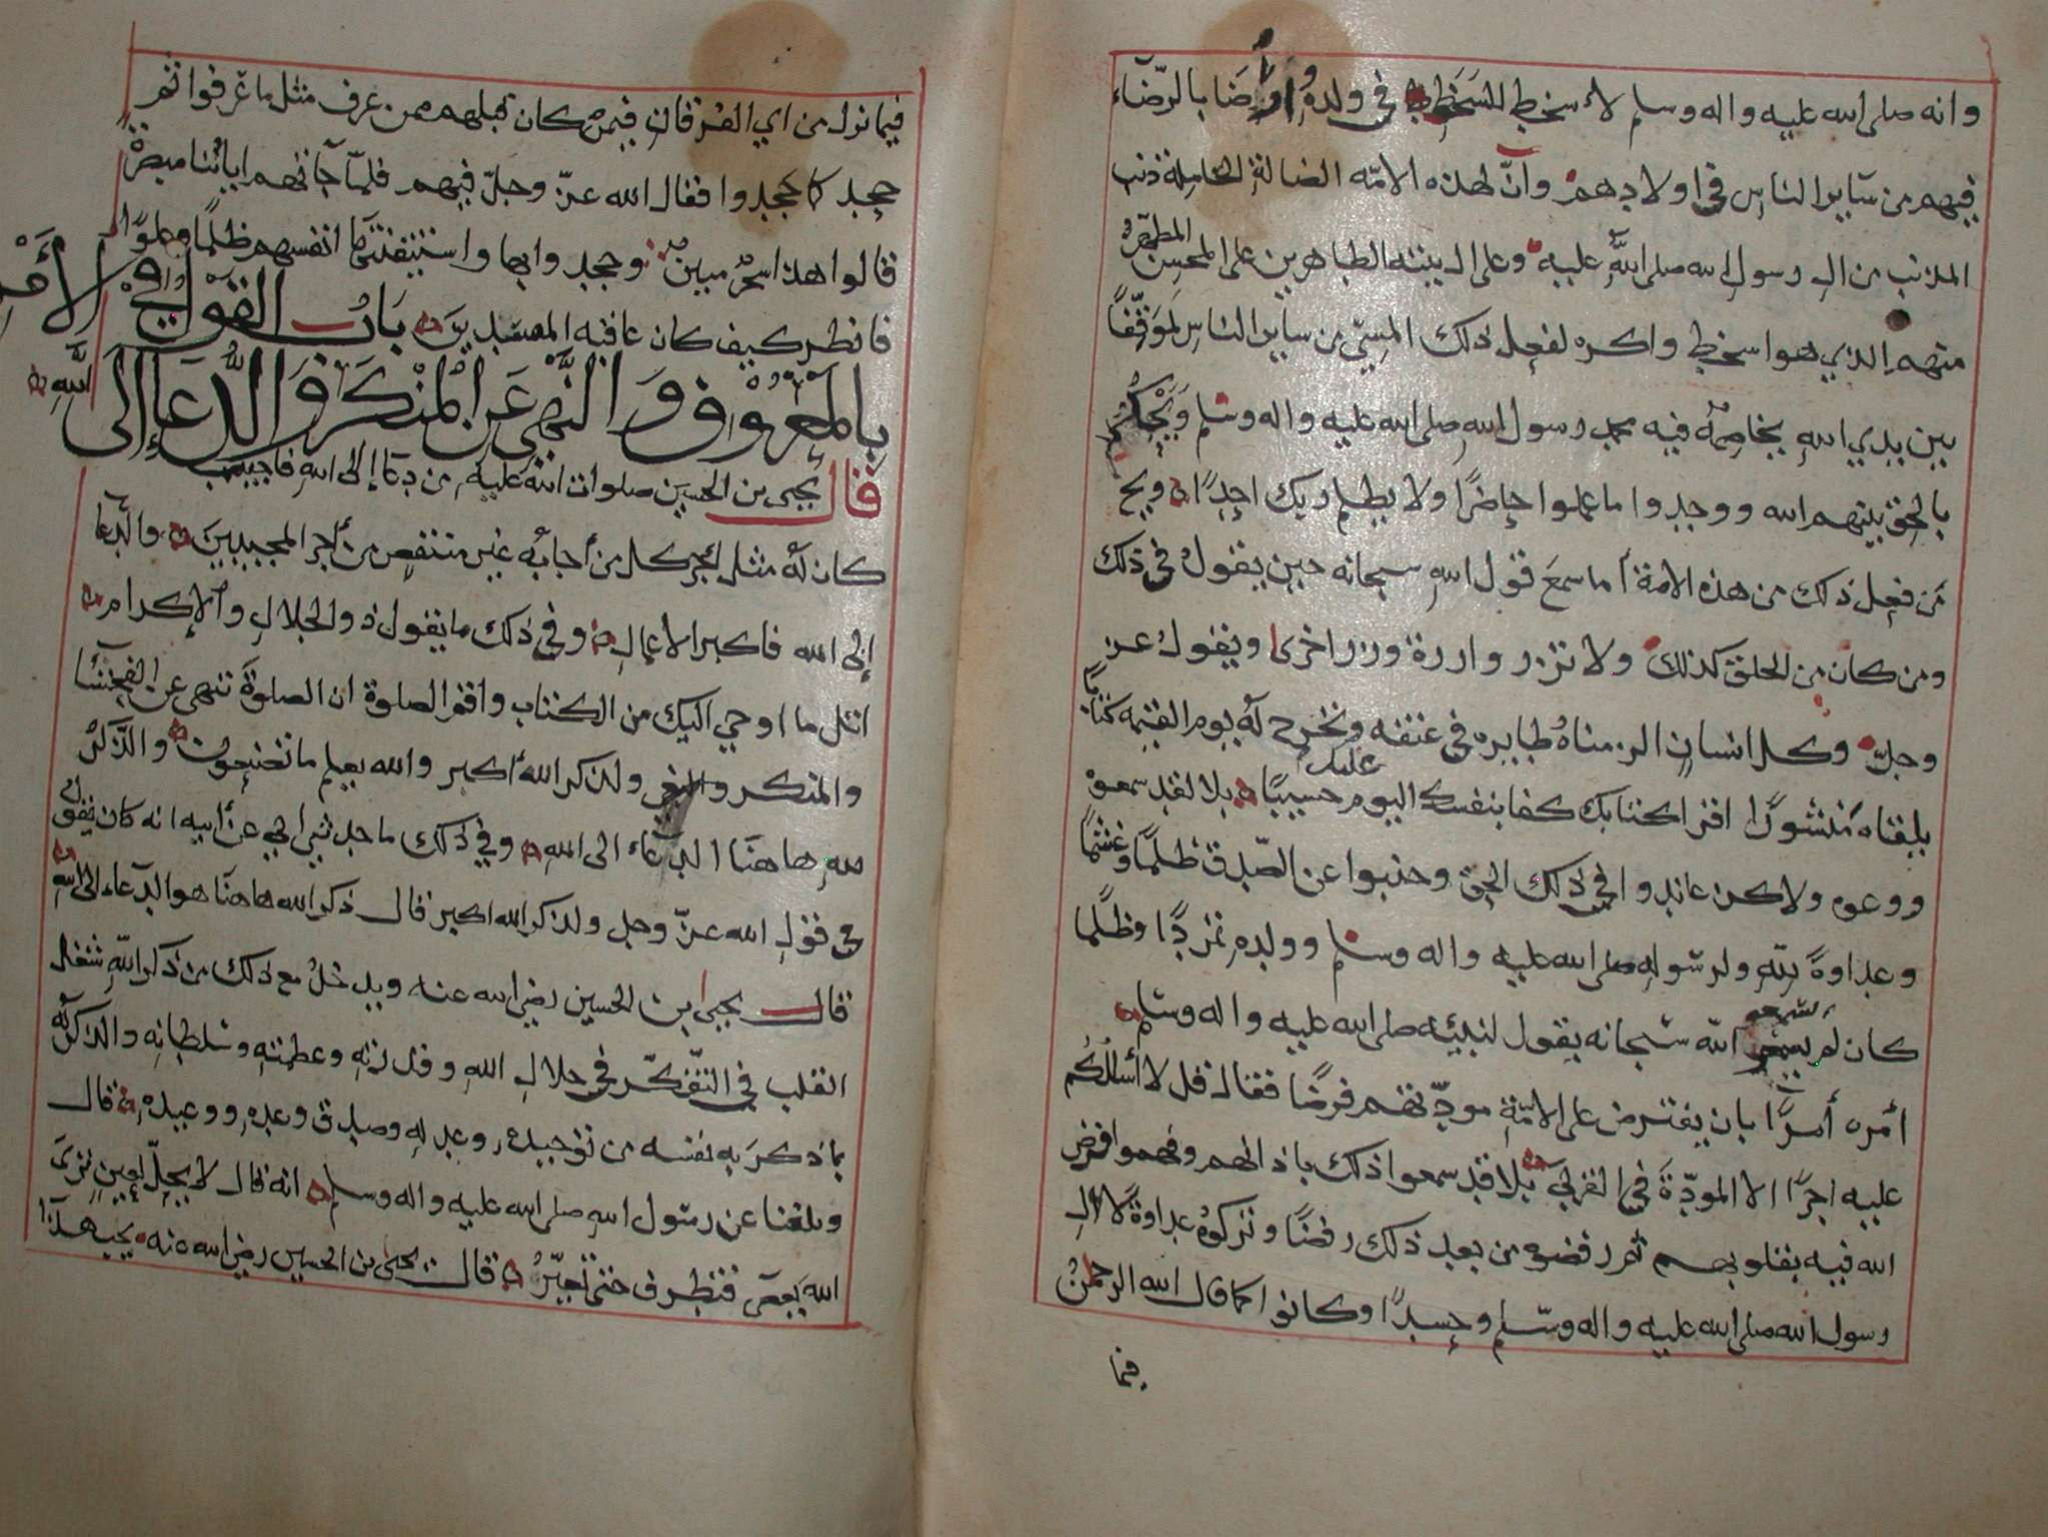 وانه صلى الله عليه واله وسلم لأسخط للسخط في ولده وأرضا بالرّضاء
فيهم من سآير الناس في اولادهم وآنّ لهذه الامّه الضالة الخاملة ذنب
المذنب من الِ رسول الله صلى اللهُ عليه وعلى ال بيته الطاهرين على المحسن المطهر
منهم الذي هو اسخط واكره لفعل ذلك المسيّ من ساير الناس لموقفًا
بين يدي الله يخاصمه فيه محمد رسول الله صلى الله عليه واله وسلم ويحكم
بالحق بينهم الله ووجدوا ما عملوا حاضرًا ولا يظلم ربك احدًا ويح
من فعل ذلك من هذه الامة أما سمعَ قول الله سبحانه حين يقولُ في ذلك
ومن كان من الخلق كذلك ولا تزر وازرة وزر اخرى ويقولُ عز
وجلّ وكل انسان الزمناهُ طايره في عنقه ونخرج لهُ يوم القيمه كتابًا
يلقاه منشورًا اقرا كتابك كفا بنفسك اليوم عليك حسيبًا بلا لقد سمعوه
ووعوه ولاكن عاندوا في ذلك الحق وجنبوا عن الصّدق ظلمًا وغشمًا
وعداوةً للهِ ولرسوله صلى الله عليه واله وسلم وولدهِ تمرّدًا وظلمًا
كان لم يسمعو اللهَ سبحانه يقول لنبيّه صلى الله عليه واله وسلم
أمره أمرًا بان يفترض على الامّة مودّتهم فرضًا فقال قل لا أسالكم
عليه اجرًا الا المودّةَ في القربى بلا قد سمعوا ذلك باذانهم وفهموا فرض
الله فيه بقلوبهم ثم رفضوه من بعد ذلك رفضًا وتركوهُ عداوةً لألِ
رسول الله صلى الله عليه واله وسّلم وحسدًا وكانوا كما قال الله الرحمنُ
فيما
فيما نزل من اي الفرقان فيمن كان قبلهم ممن عرف مثل ما عرفوا ثم
جحد كما جحدوا فقال الله عزّ وجلّ فيهم فلمّا جآتهم اياتُنا مبصرة
قالوا هذا سحرٌ مبينٌ وجحدوا بها واستيقنتهَا انفسهم ظلمًا وعلوًّا
فانظر كيف كان عاقبه المفسدينَ بَابُ القول في الأمر
بالمعروف وَالنَّهي عَنِ الْمُنْكَرِ وَالدُّعَآ إلَى اللَّهِ
قال يحيى بن الحسين صلوات الله عليه من دعا إلى الله فاجيب
كان لهُ مثل اجر كل من أجابه غير منتقص من أجر المجيبينَ والدّعا
إلى الله فاكبر الاعمالِ وفي ذلك ما يقول ذو الجلالِ والاكرام
اتل ما اوحي اليك من الكتاب واقم الصلوة ان الصلوةَ تنهى عن الفحشآ
والمنكر والبغي ولذكر الله أكبر والله يعلم ما تصنعون والذّكرُ
للهِ هاهنا الدعآء الى اللهِ وفي ذلك ما حدثني ابي عن أبيه انه كان يقولُ
في قول الله عزّ وجل ولذكر الله اكبر قال ذكر الله هاهنا هو الدعآء الى الله
قال يحيى ابن الحسين رضي الله عنه ويدخلُ مع ذلك من ذكر اللّهِ شغل
القلب في التّفكّر في جلالِ اللهِ وقدرتِهِ وعظمتهِ وسلطانِه والذكر لهُ
بما ذكرَ بهِ نفسه من توحيده وعدلهِ وصدق وعدهِ ووعيدهِ قال
وبلغنا عن رسول الله صلى الله عليه واله وسلم انه قال لا يحِلّ لعينٍ ترىَ
الله يعصَى فتطرف حتى تُغيّرُ قال يحيى بن الحسين رضي الله عنه يجب هذا